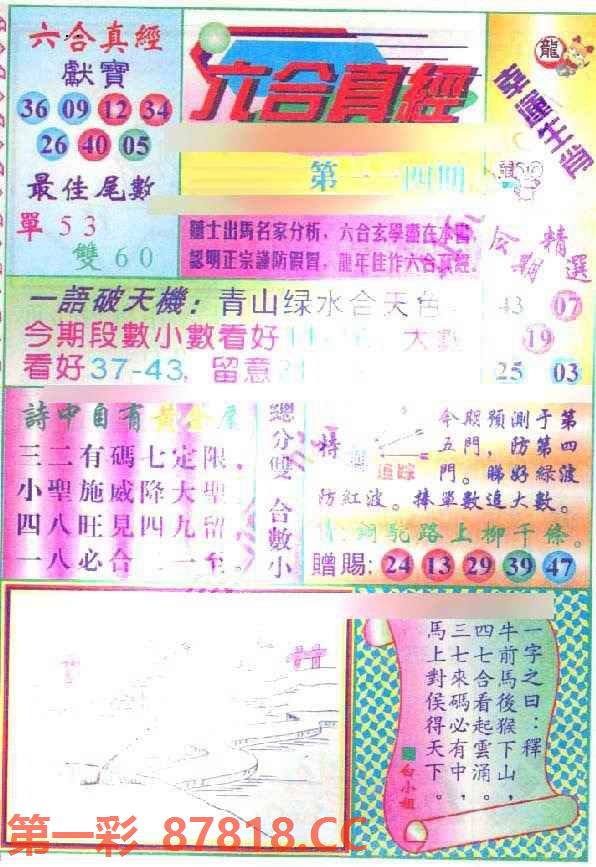 六合真經
獻寶
36 09 12 34
26 40 05
最佳尾數
單 5 3
雙 6 0
六合真經
第一一四期
龍
幸運生肖
鼠
隱士出馬名家分析，六合玄學盡在本圖
認明正宗謹防假冒，龍年佳作六合真經.
精選
43 07
19
25 03
一語破天機：青山绿水合天色
今期段數小數看好 大數
看好37-43, 留意
詩中自有黃金屋
三二有碼七定限。
小聖施威降大聖
四八旺見四九留
一八必合二一至。
總分雙 合數小
追踪
今期預測于第
五門，防第四
門。睇好綠波
防紅波。捧單數追大數。
銅駝路上柳千條。
贈賜: 24 13 29 39 47
一字之曰：釋
牛前馬後猴下山，
四七合看起雲涌。
三七來碼必有中，
馬上對侯得天下。
白小姐
第一彩 87818.CC